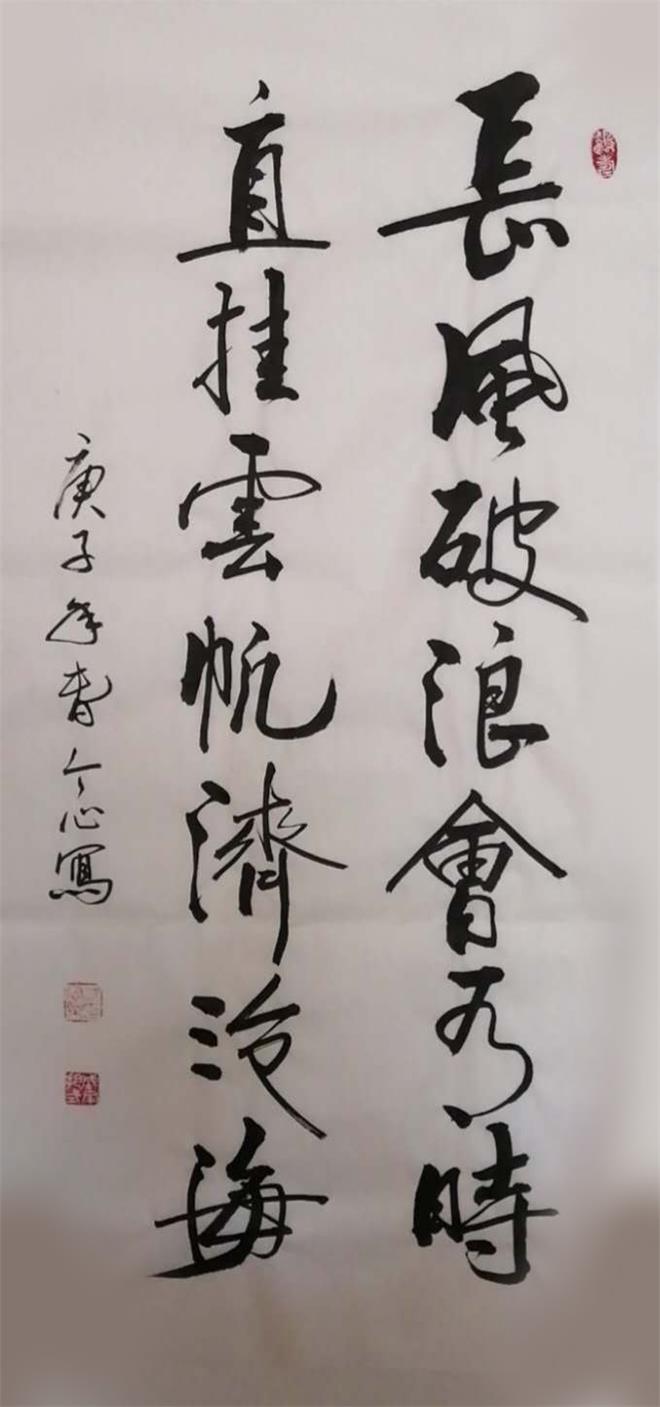 長風破浪會有時
直挂雲帆濟滄海
庚子年春今心寫